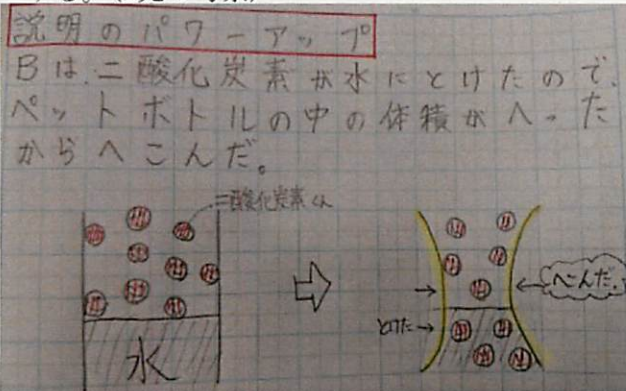 説明のパワーアップ
Bは、二酸化炭素が水にとけたので、
ペットボトルの中の体積がへった
からへこんだ。
二酸化炭素くん
へこんだ。
とけた
水